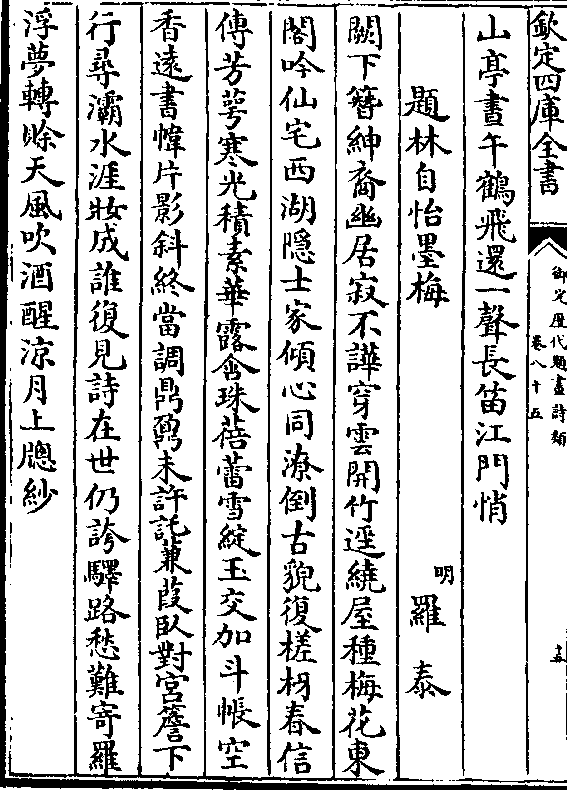 欽定四庫全書
御定歴代題畫詩類
卷八十五
十五
山亭晝午鶴飛還一聲長笛江門悄
題林自怡墨梅
明
羅泰
闕下簪紳裔幽居寂不譁穿雲開竹逕繞屋種梅花東
閣吟仙宅西湖隐士家傾心同潦倒古貌復槎枒春信
傳芳萼寒光積素華露含珠蓓蕾雪綻玉交加斗帳空
香遠書幃片影斜終當調鼎鼐未許託蒹葭臥對宮簷下
行尋灞水涯妝成誰復見詩在世仍誇驛路愁難寄羅
浮夢轉賖天風吹酒醒涼月上牕紗